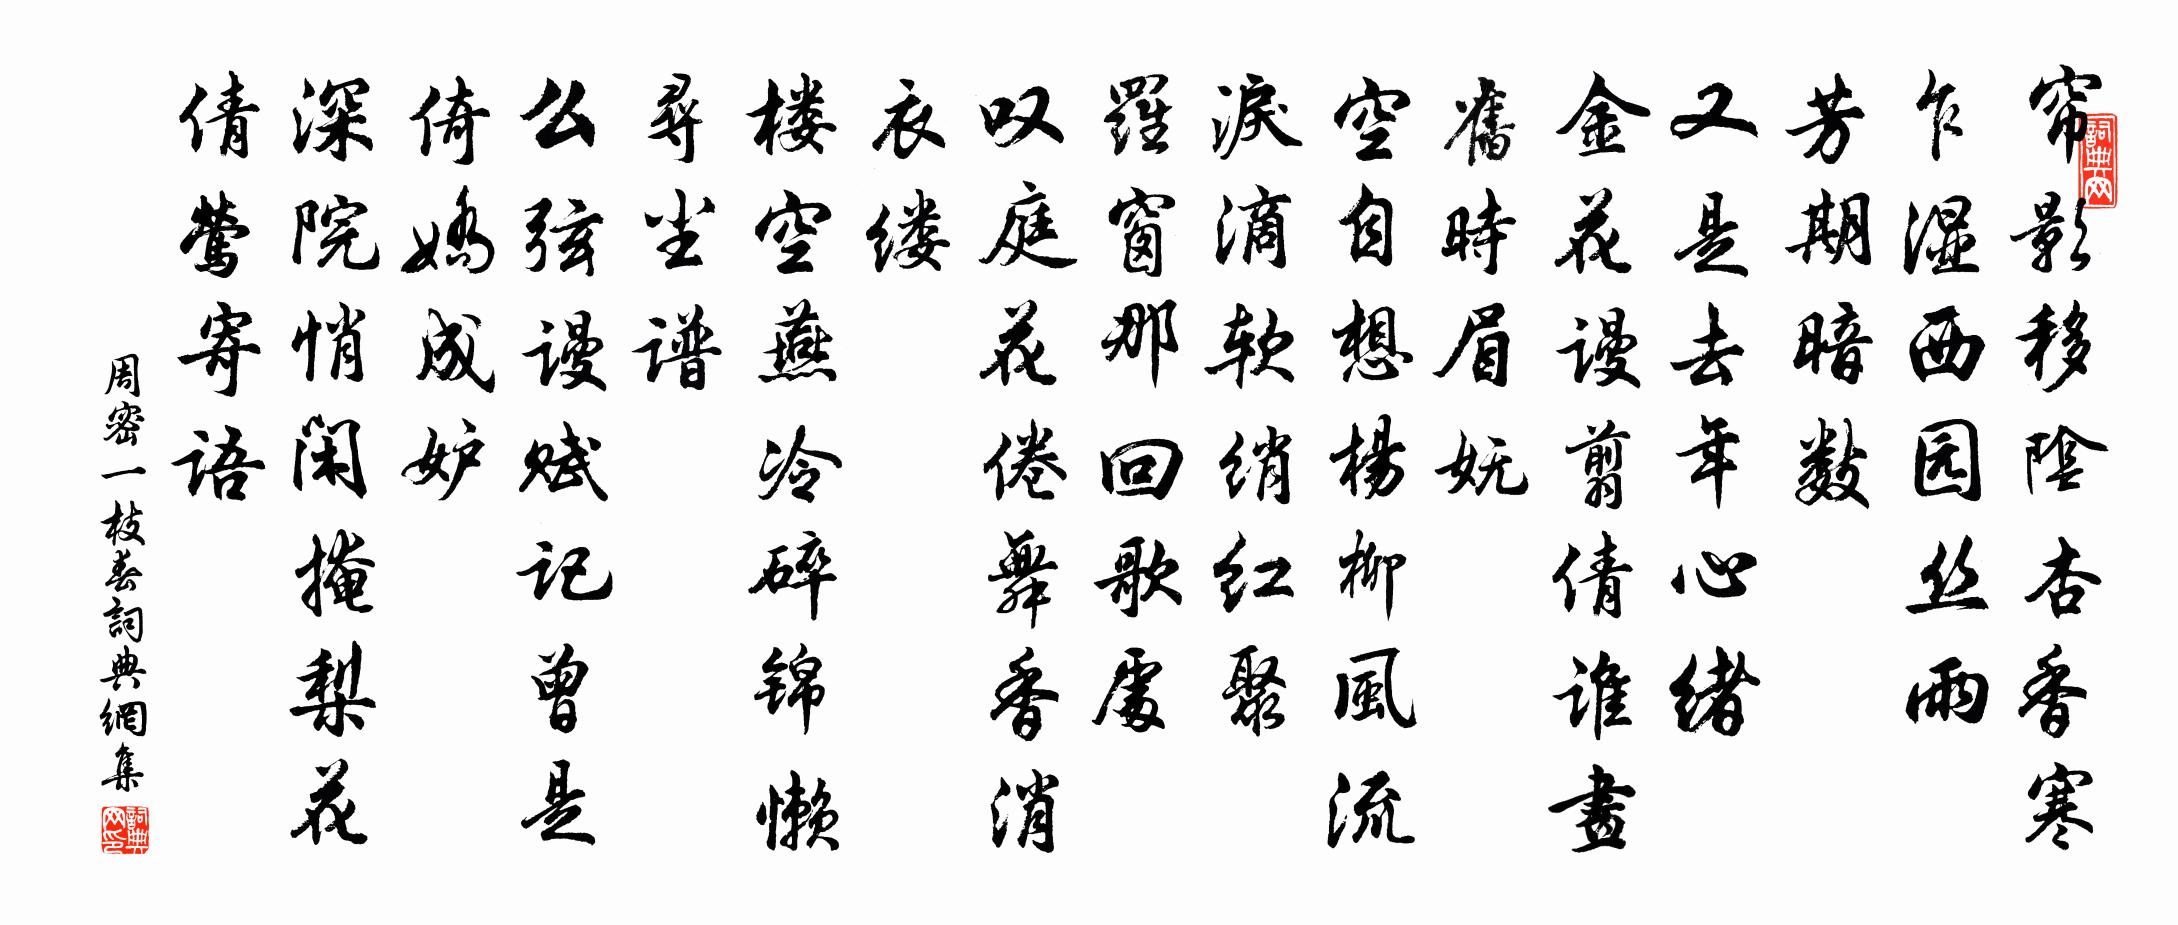 帘影移阴杏香寒
乍湿西园丝雨
芳期暗数
又是去年心绪
金花谩剪倩谁画
舊時眉妩
空自想楊柳風流
淚滴软绡红聚
羅窗那回歌處
叹庭花倦舞香消
衣缕
楼空燕冷碎锦懒
尋尘谱
么弦谩赋记曾是
倚娇成妒
深院悄闲掩梨花
倩莺寄语
周密一枝春詞典網集
詞典网
詞典网印